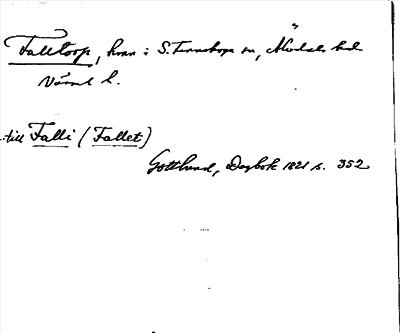 Falltorp, kvarn i S. Finnskoga sn, Älvdals hd
Värml. l.
till Falli (Fallet)
Gottlund, Dagbok 1821 s. 352